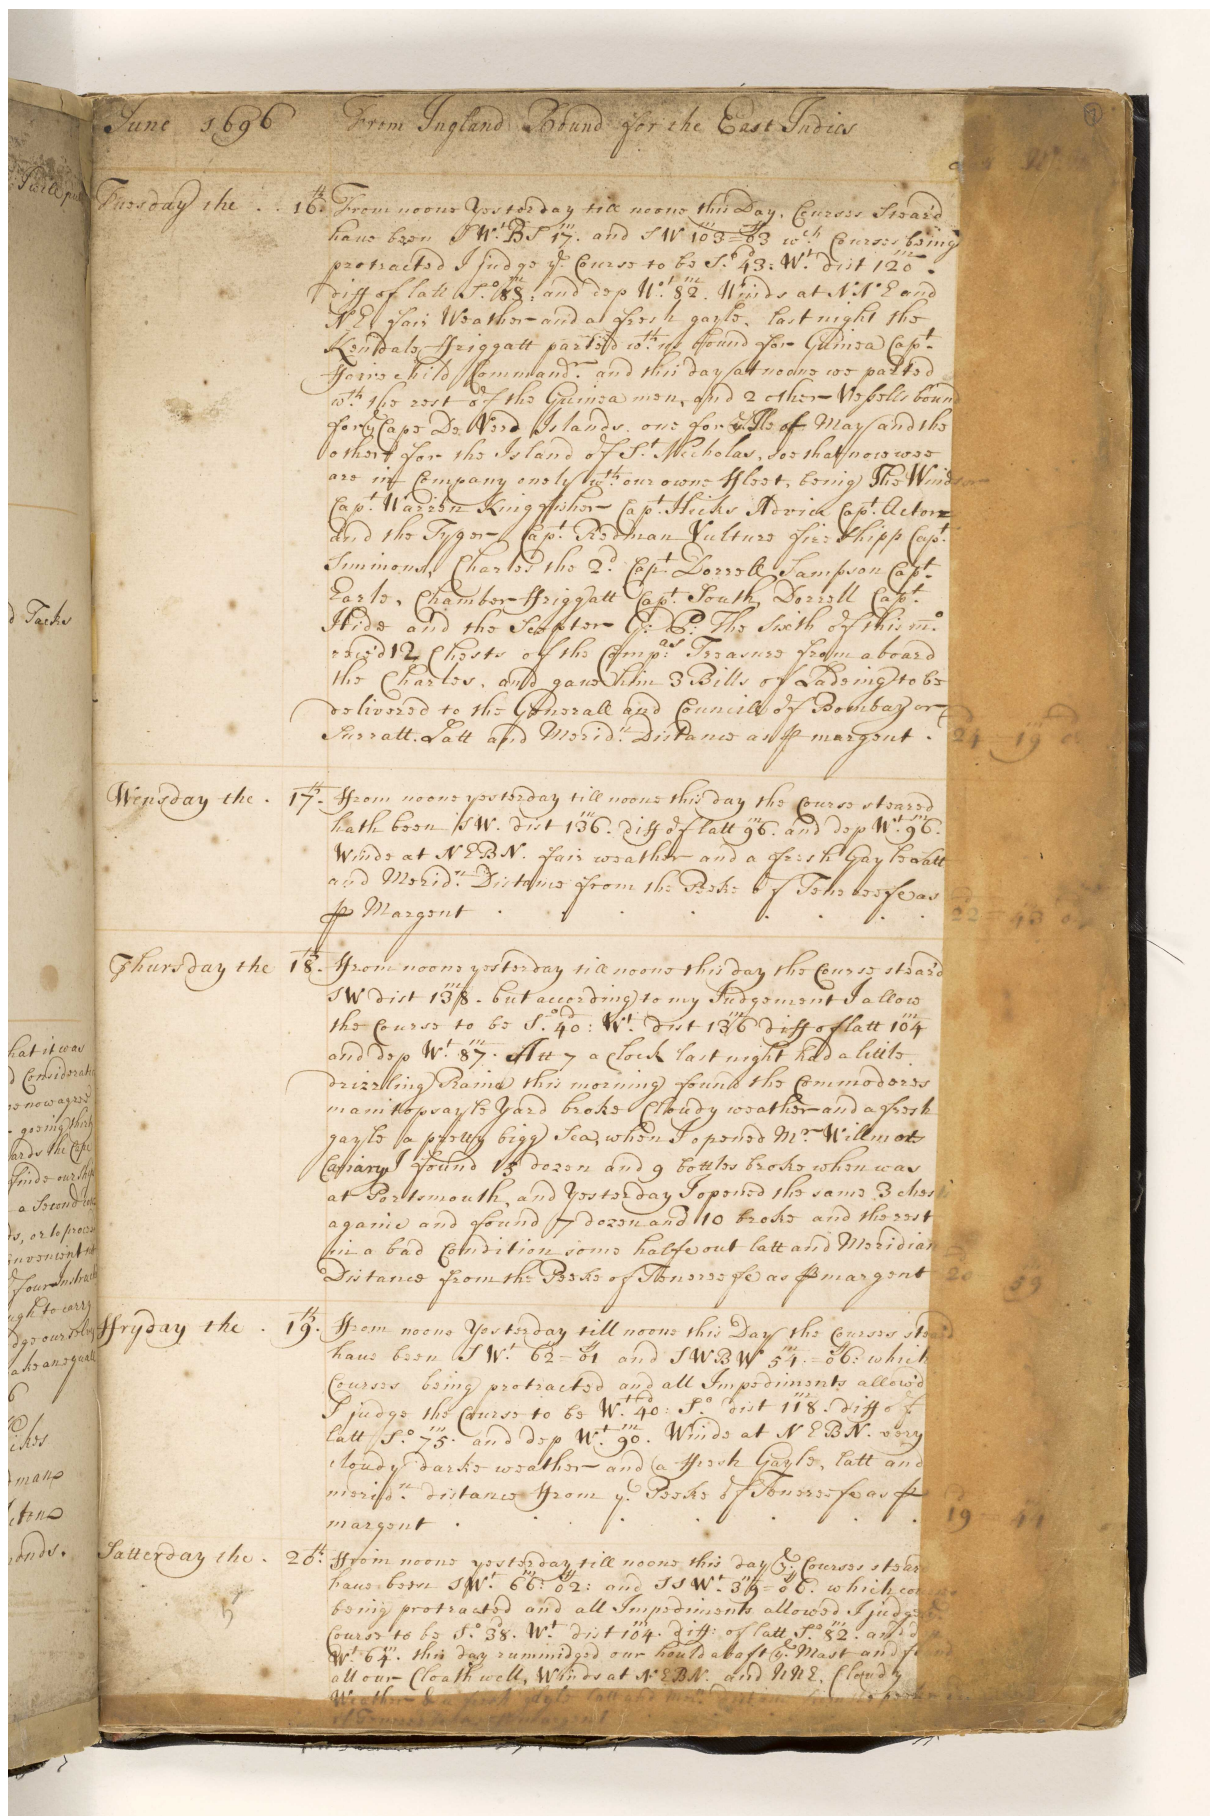 June 1696 From Ingland Bound for the East Indies
Tuesday the . . 16th From noone Yesterday till noone this Day, Courses Steard
have been S Wt. B S 17m. and S W 103m = 03 wch. Courses being
protracted I judge ye. Course to be So. 43d: Wt. dist 120m .
diff of latt So. 88m: and dep Wt. 82m. Winds at N. N E and
N E, fair Weather and a fresh gayle, last night the
Kendale ffriggatt parted wth us bound for Guinea Capt.
ffairechild Commandr. and this day at noone we parted
wth. the rest of the Guinea men, and 2 other Vessells bound
for ye Cape De Verd Islands, one for ye Isle of May and the
other for the Island of St. Nicholas, soe that now wee
are in Company onely wth. our owne ffleet, being The Windsor
Capt. Warren Kingfisher Capt. Hicks Advice Capt. Acton
and the Tyger Capt. Redman Vulture fire Shipp Capt.
Simmons, Charles the 2d. Capt Dorrell Sampson Capt.
Earle, Chamber ffriggatt Capt. South, Dorrell Capt.
Hide and the Scepter G: P: The Sixth of this mo.
recd 12 Chests of the Compas: Treasure from aboard
the Charles, and gave him 3 Bills of Ladeing to be
delivered to the Generall and Councill of Bombay or
Surratt. Latt and Meridn. Distance as p margent . 24 19
Wensday the . 17th. ffrom noone yesterday till noone this day the Course steared
hath been S W. dist 136m. diff of latt 96m. and dep Wt. 96m.
Winds at N E B N. fair weather and a fresh Gayle Latt
and Meridn. Distance from the Peeke of Tenereefe as
p Margent . . . . . . . 22 = 43
Thursday the 18th. ffrom noone yesterday till noone this day the Course steard
S W dist 138m. but according to my Judgement I allow
the Course to be So. 40d: Wt. dist 136m diff of latt 104m
and dep Wt. 87m. Att 7 a Clock last night had a little
drizzling Raine this morning found the Commodores
maintopsayle Yard broke Cloudy weather and a fresh
gayle a pretty bigg Sea, when I opened Mr. Willmots
Canary I found 15 dozen and 9 bottles broke when was
at Portsmouth, and Yesterday I opened the same 3 chests
againe and found 7 dozen and 10 broke and the rest
in a bad Condition some halfe out latt and Meridian
Distance from the Peeke of Tenereefe as p margent 20 59
ffryday the . 19th. ffrom noone Yesterday till noone this Day the Courses steard
have been S Wt. 62m = 01 and S W B W 54m. = 06: which
Courses being protracted and all Impediments allow'd
I judge the Course to be Wt. 40d: So. dist 118m. diff of
latt So. 75m. and dep Wt. 90m. Winds at N E B N. very
cloudy darke weather and a ffresh Gayle, latt and
meridn. distance ffrom ye. Peeke of Tenereefe as p
margent . . . . . . . 19 = 44
Satterday the . 20th. ffrom noone yesterday till noone this day ye: Courses steard
have been S Wt. 66m: 02: and S S Wt. 39m = 06. which courses
being protracted and all Impediments allowed I judge ye
Course to be So. 38d. Wt. dist 104m. diff: of latt So. 82m. and dep
Wt. 64m. this day rummidged our hould abaft ye. Mast and found
all our Cloath well, Winds at N E B N. and N N E, Cloudy
Weather & a fresh gayle latt and mern. distance from the peeke
of Tenereefe as p margent